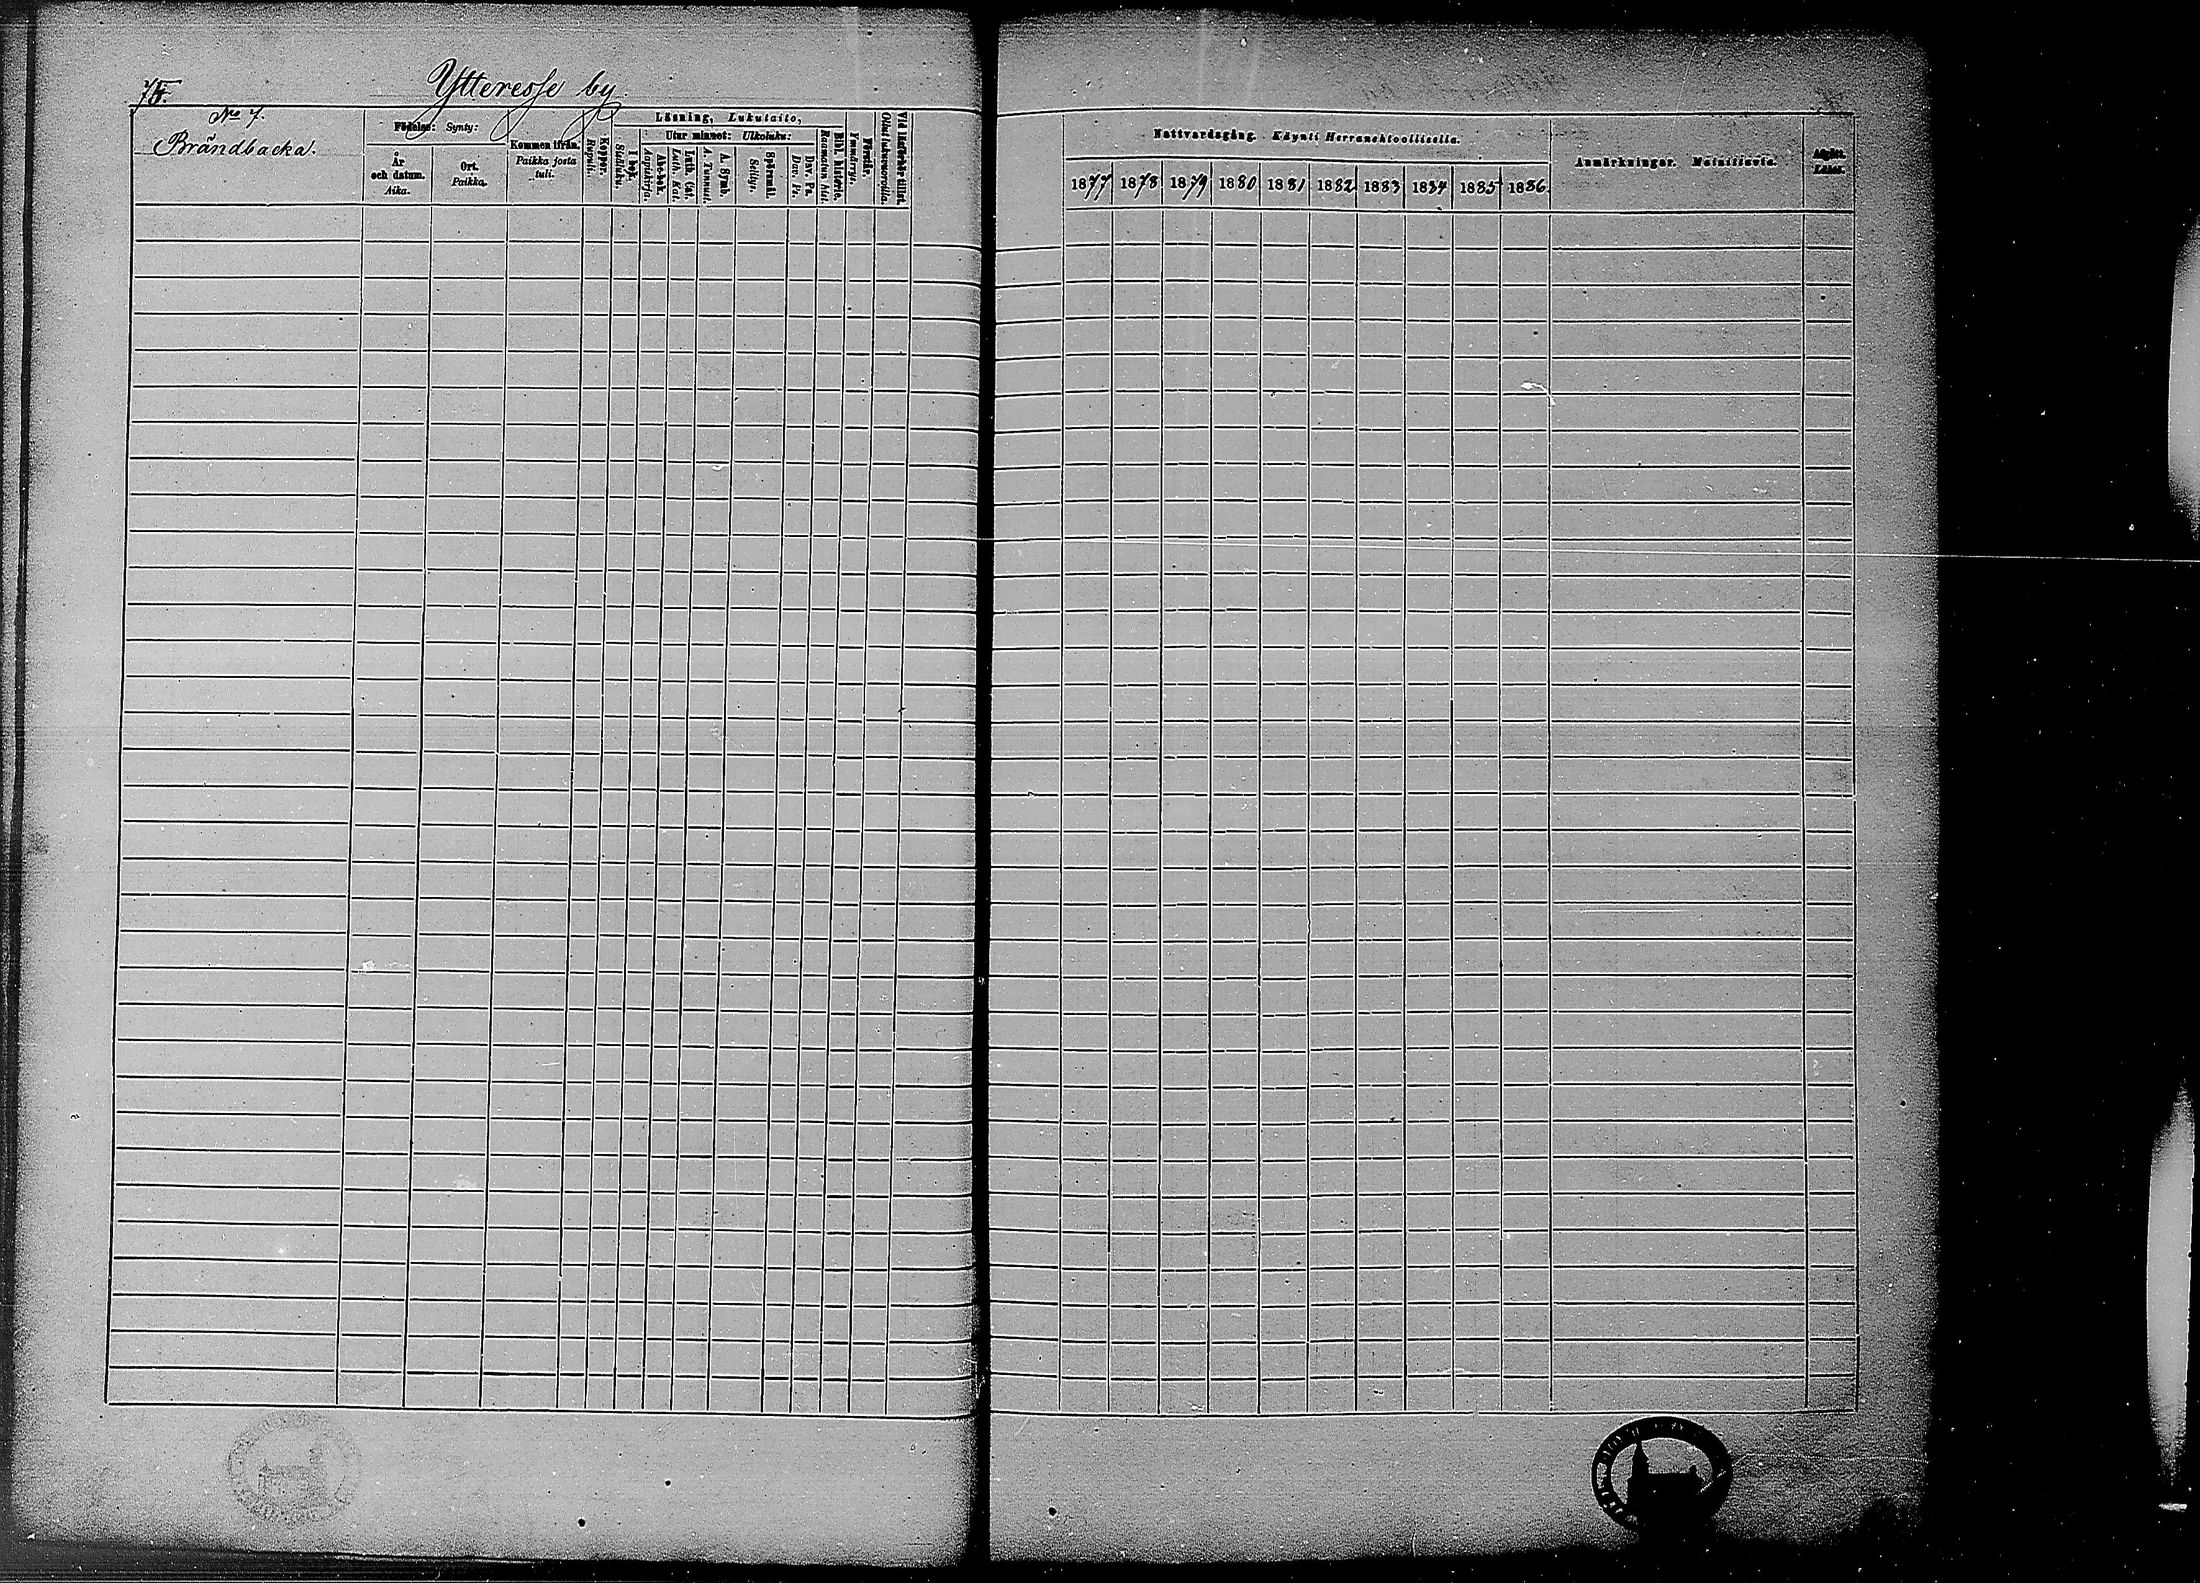 75.
Ytteresse by.
No 7.
Brändbacka.
Födelse: Synty:
År
och datum.
Aika.
Ort.
Paikka.
Kommen ifrån.
Paikka josta
tuli.
Koppor.
Rupuli.
Läsning, Lukutaito,
I bok.
Sisäluku.
Utur minnet: Ulkoluku:
Abc-bok.
Aapiskirja.
Luth. Cat.
Luth. Kat.
A. Symb.
A. Tunnust.
Spörsmål.
Selitys.
Dav. Ps.
Dav. Ps.
Bibl. historie.
Raamatun hist.
Förstår.
Ymmärrys.
Vid läsförhör tillst.
Ollut lukuvuoroilla.
Nattvardsgång. Käynti Herranehtoollisella.
1877 1878 1879 1880 1881 1882 1883 1884 1885 1886
Anmärkningar. Muistutuksia.
Afgått.
Lähtö.